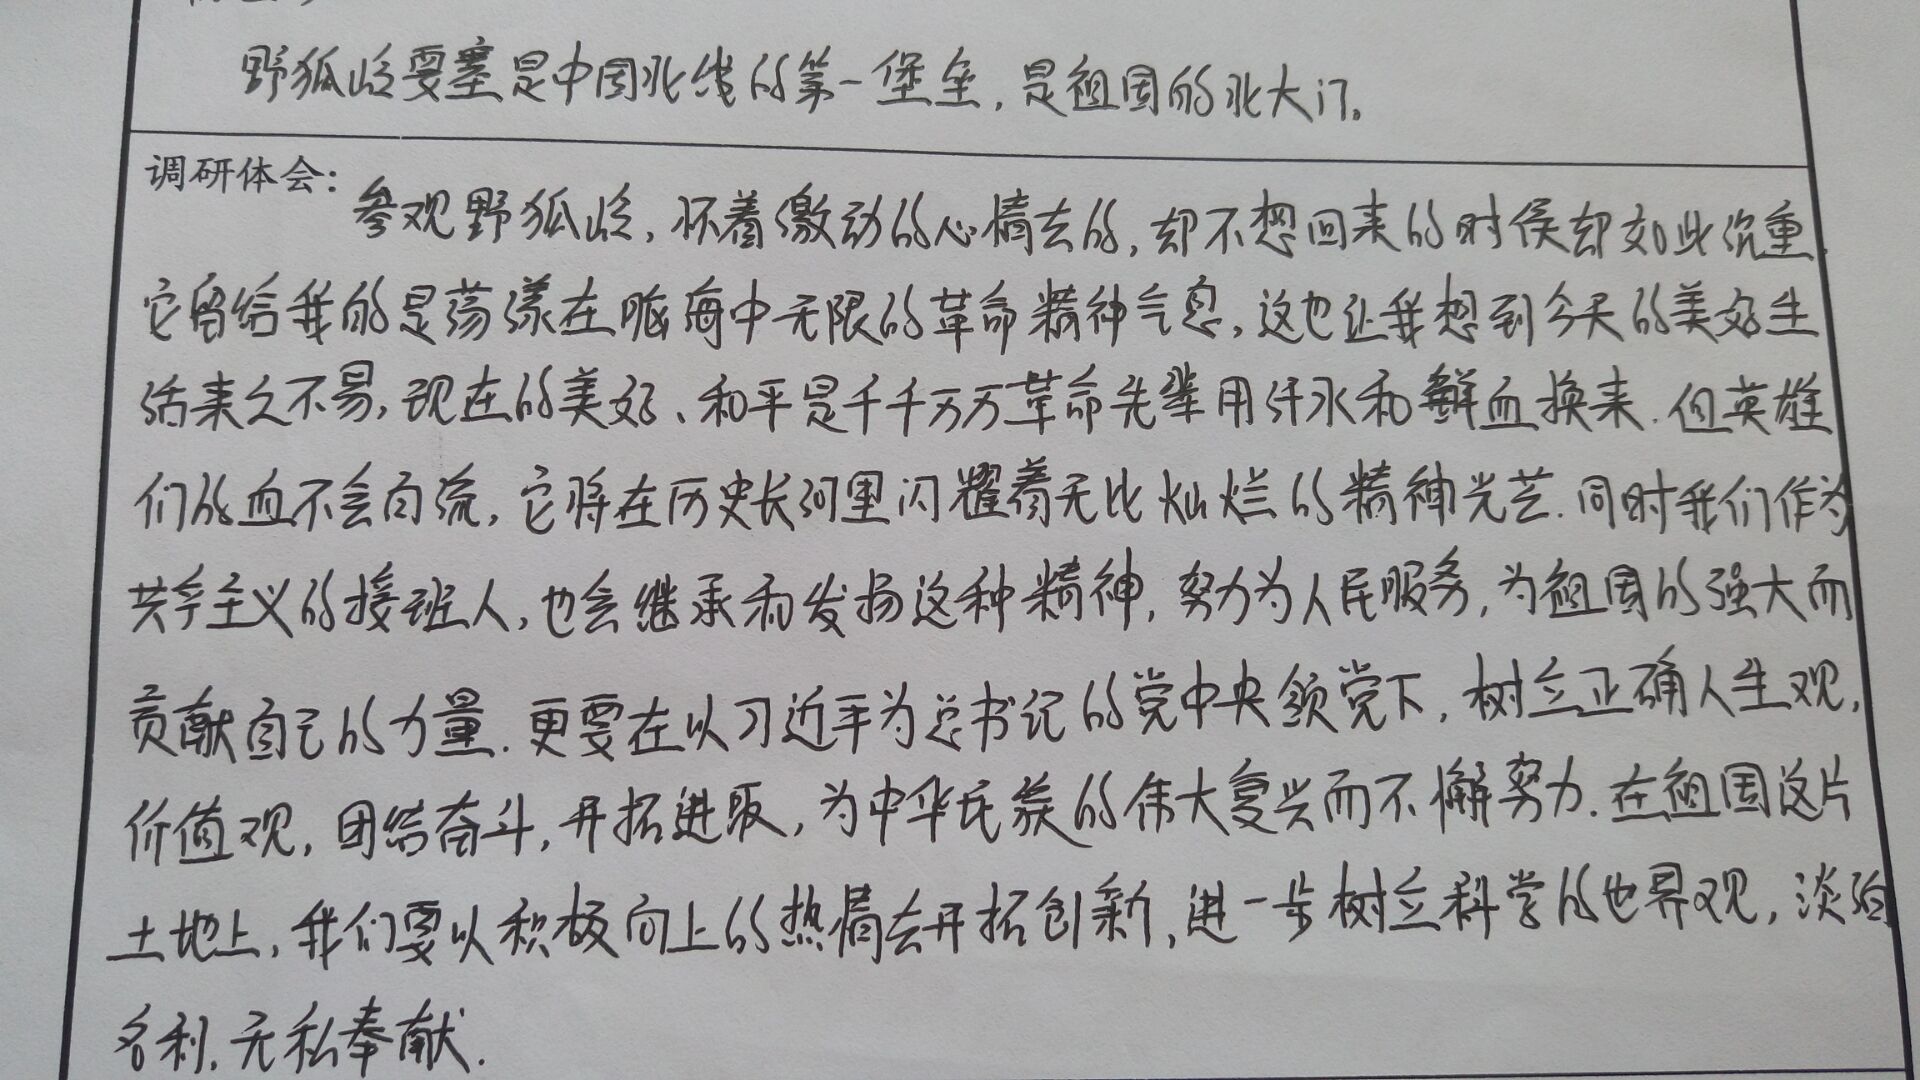 野狐岭要塞是中国北线的第一堡垒,是祖国的北大门。
调研体会:
参观野狐岭,怀着激动的心情去的,却不想回来的时侯却如此沉重.
它留给我的是荡漾在脑海中无限的革命精神气息,这也让我想到今天的美好生
活来之不易,现在的美好、和平是千千万万革命先辈用汗水和鲜血换来.但英雄
们的血不会白流,它将在历史长河里闪耀着无比灿烂的精神光芒.同时我们作为
共产主义的接班人,也会继承和发扬这种精神,努力为人民服务,为祖国的强大而
贡献自己的力量.更要在以习近平为总书记的党中央领党下,树立正确人生观,
价值观,团结奋斗,开拓进取,为中华民族的伟大复兴而不懈努力.在祖国这片
土地上,我们要以积极向上的热情去开拓创新,进一步树立科学的世界观,淡泊
名利.无私奉献.